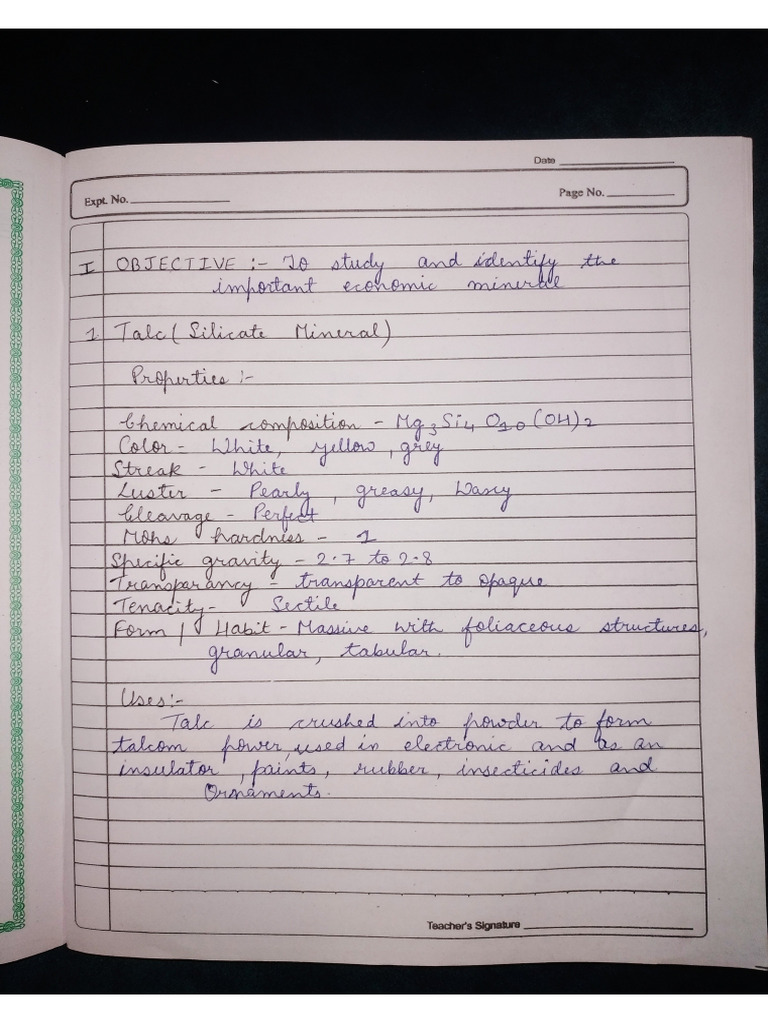 Date
Expt. No.
Page No.
I OBJECTIVE :- To study and identify the
important economic mineral
1 Talc ( Silicate Mineral)
Properties :-
Chemical composition - Mg3Si4O10(OH)2
Color - White, yellow, grey
Streak - White
Luster - Pearly, greasy, Waxy
Cleavage - Perfect
Mohs hardness - 1
Specific gravity - 2.7 to 2.8
Transparancy - transparent to opaque
Tenacity - Sectile
Form / Habit - Massive with foliaceous structures,
granular, tabular.
Uses:-
Talc is crushed into powder to form
talcom power, used in electronic and as an
insulator, paints, rubber, insecticides and
Ornaments.
Teacher's Signature